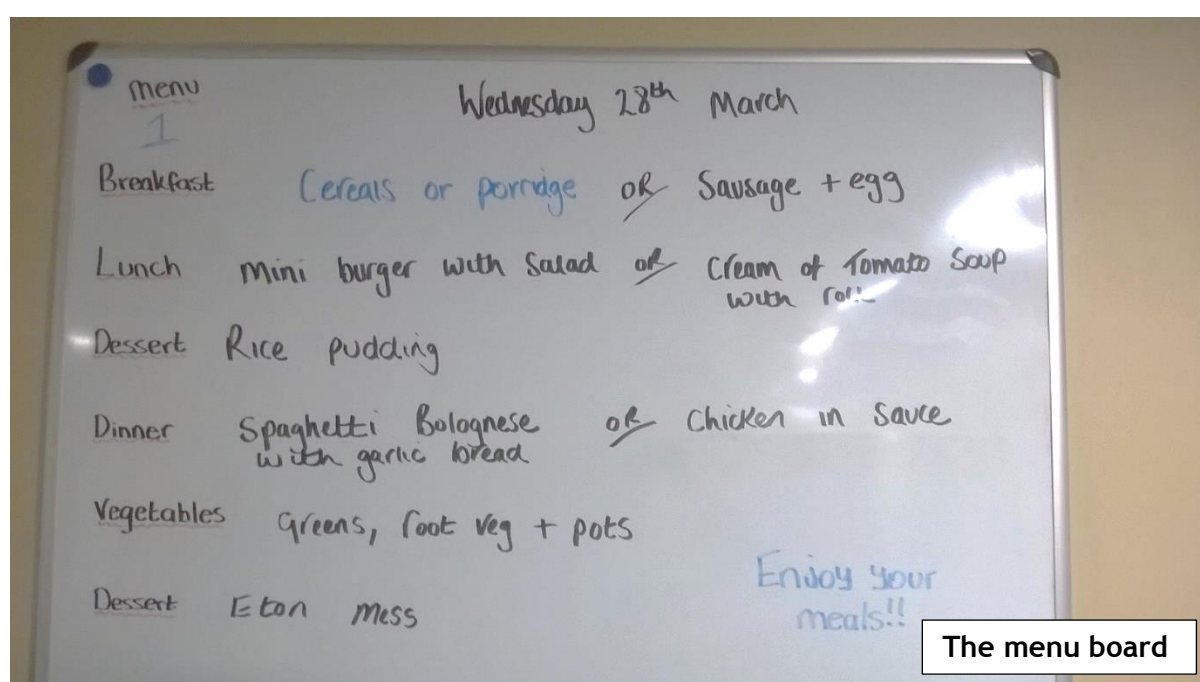 menu
1
Wednesday 28th March
Breakfast Cereals or porridge OR Sausage + egg
Lunch Mini burger with Salad OR Cream of Tomato Soup
with roll
Dessert Rice pudding
Dinner Spaghetti Bolognese OR Chicken in Sauce
with garlic bread
Vegetables Greens, root veg + pots
Dessert Eton mess
Enjoy your
meals!!
The menu board